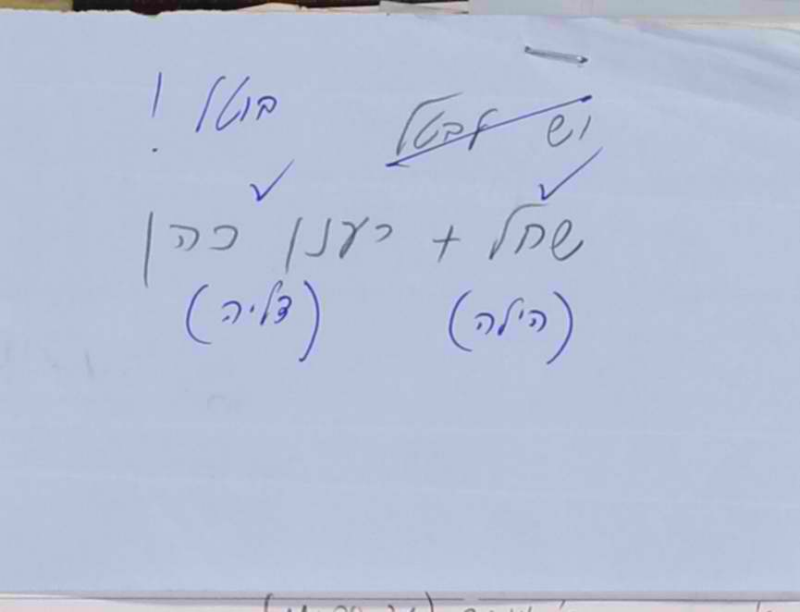 יש לבטל בוטל !
שחל + רענן כהן
(הילה) (דליה)